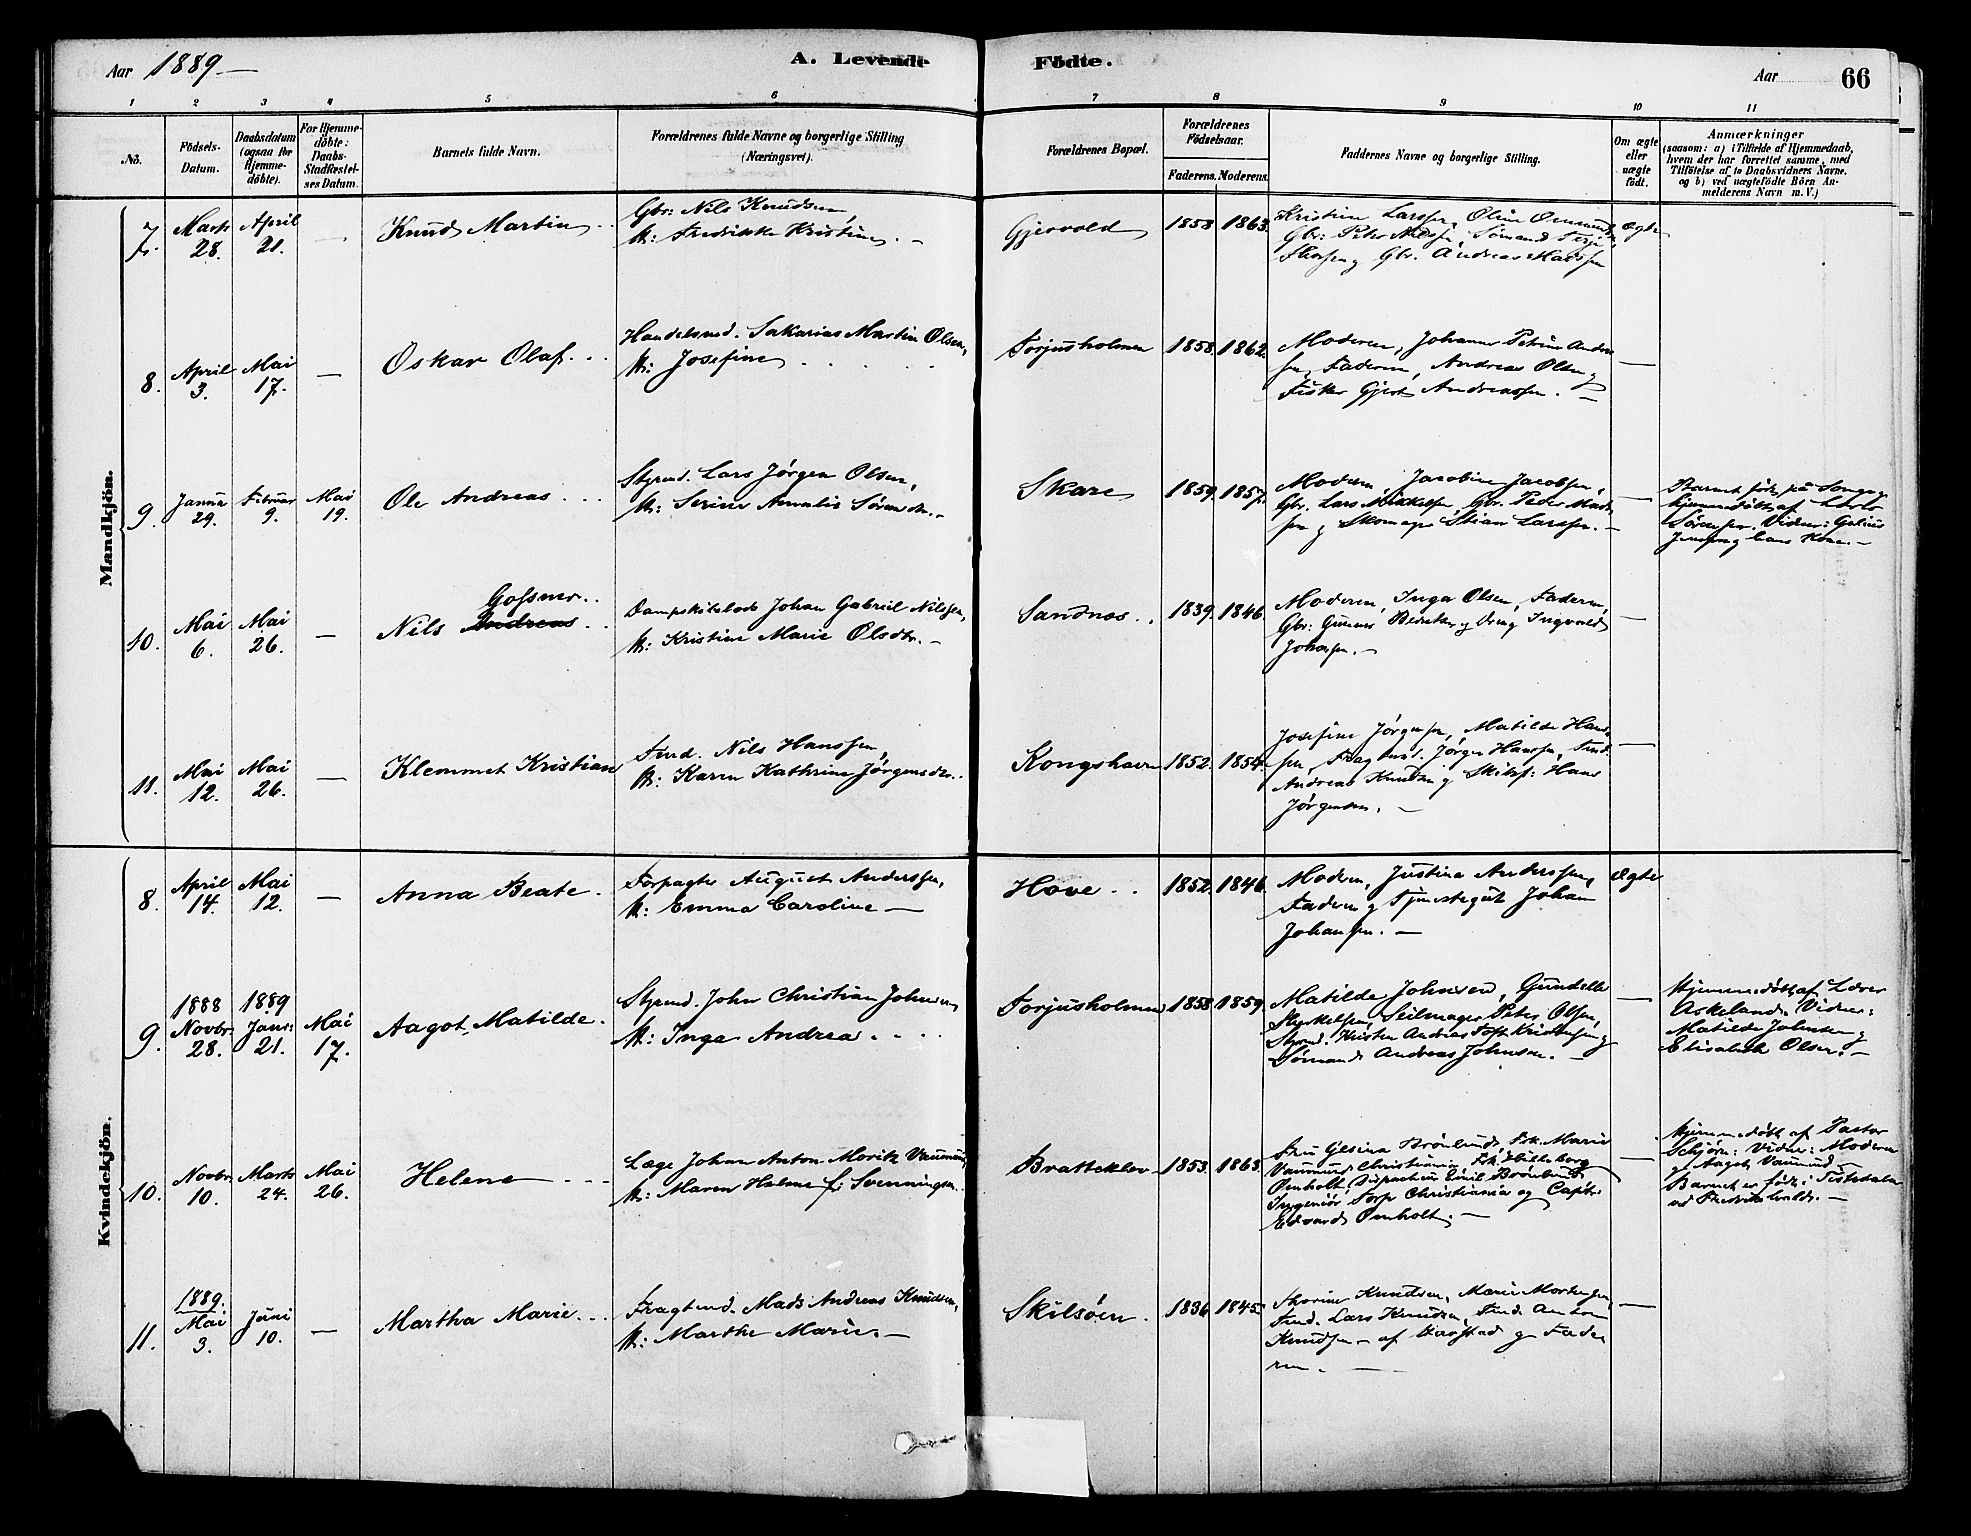 Aar 1889 —
A. Levende
Födte.
Aar
66
1 2 3 4 5 6 7 8 9 10 11
No.
Födsels-
Datum.
Daabsdatum
(ogsaa for
Hjemme-
döbte).
For Hjemme-
döbte:
Daabs-
Stadfæstel-
ses Datum.
Barnets fulde Navn.
Forældrenes fulde Navne og borgerlige Stilling
(Næringsvei).
Forældrenes Bopæl.
Forældrenes
Födselsaar.
Faderens. Moderens.
Faddernes Navne og borgerlige Stilling.
Om ægte
eller
uægte
födt.
Anmærkninger
(saasom: a) i Tilfælde af Hjemmedaab,
hvem der har forrettet samme, med
Tilföielse af to Daabsvidners Navne,
og b) ved uægtefödte Börn An-
melderens Navn m. V.)
Mandkjön.
7.
Marts
28.
April
21.
—
Knud Martin
Gbr: Nils Knudsen
H: Fredrikke Kristine
Gjervold
1858. 1863.
Kristine Larssen, Oline
Gbr: Peder Nilssen, Sömand
Gbr. Andreas Madssen
Ægte
8.
April
3.
Mai
17.
—
Oskar Olaf
Handelsmd. Sakarias Martin Olsen,
H: Josefine
Torjusholmen
1858. 1862.
Moderen, Johanne Petrine Anders
sen, Faderen, Andreas Olsen og
Fisker Gjert Andreassen. —
—
9
Janua
29.
Februar
9.
Mai
19.
Ole Andreas
Styrmd. Lars Jörgen Olsen,
H: Serine Amalie Sörensdtr. —
Skare
1859. 1857.
Moderen, Jacobine Jacobsen,
Gbr. Lars Mikkelsen, Gbr. Peder Mads
sen og Skomager Stian Larssen. —
—
Barnet født på Songe,
hjemmedöbt af Lars
Sörensen. Vidner: Gelius
Jensen og hans Kone. —
10.
Mai
6.
Mai
26.
—
Gossner
Nils Andreas
Dampskibslods Johan Gabriel Nilssen,
H: Kristine Marie Olsdtr. —
Sandnes
1839. 1846.
Moderen, Inga Olsen, Faderen,
Gbr: Gunner og Dreng Ingvald
Johansen. —
—
11.
Mai
12.
Mai
26.
—
Klemmet Kristian
Nils Hanssen,
H: Karen Kathrine Jörgensdtr.
Kongshavn
1852. 1854.
Josefine Jörgensen, Matilde Hans
sen, Fragtmd. Jörgen Hanssen,
Andreas Knudsen og Skibsf: Hans
Jörgensen. —
—
Kvindekjön.
8.
April
14.
Mai
12.
—
Anna Beate
Forpagter August Anderssen,
H: Emma Caroline —
Hove
1852. 1846.
Moderen, Justina Anderssen,
Faderen og Tjenestegut Johan
Johanssen. —
Ægte
9.
1888
Novbr:
28.
1889
Jan:
21.
Mai
17.
Aagot Matilde.
Styrmd. John Christian Johnsen,
H: Inga Andrea
Torjusholmen
1858. 1859.
Matilde Johnsen, Gundelle
Seilmager Peter Olsen,
Styrmd. Kristen Andreas
Sömand Andreas Johnsen. —
—
Hjemmedöbt af Lærer
Askeland. Vidner:
Matilde Johnsen og
Elisabeth Olsen. —
10.
Novbr.
10.
Marts
24.
Mai
26.
Helene
Læge Johan Anton Moritz Vaumund,
H: Maren Helene f. Svenningsen.
Bratteklev
1853. 1863.
Fru Gesina Brönlund, Frk. Marie
Vaumund Christiania, Frk. Hilleborg
Omholt, Emil Brönlund,
Ingeniör Torp Christiania og Capt:
Edvard Omholt. —
—
Hjemmedöbt af Pastor
Schjörn: Vidner: Moderen
og Aagot Vaumund —
Barnet er födt i Tistedalen
ved Fredrikshald. —
11.
1889.
Mai
3.
Juni
10.
—
Martha Marie
Fragtmd. Mads Andreas Knudsen,
H: Marthe Marie. —
Skilsöen
1836. 1845.
Thorine Knudsen, Marie Mortensen,
Lars Knudsen, Anton
Knudsen — af og Fade-
ren. —
—